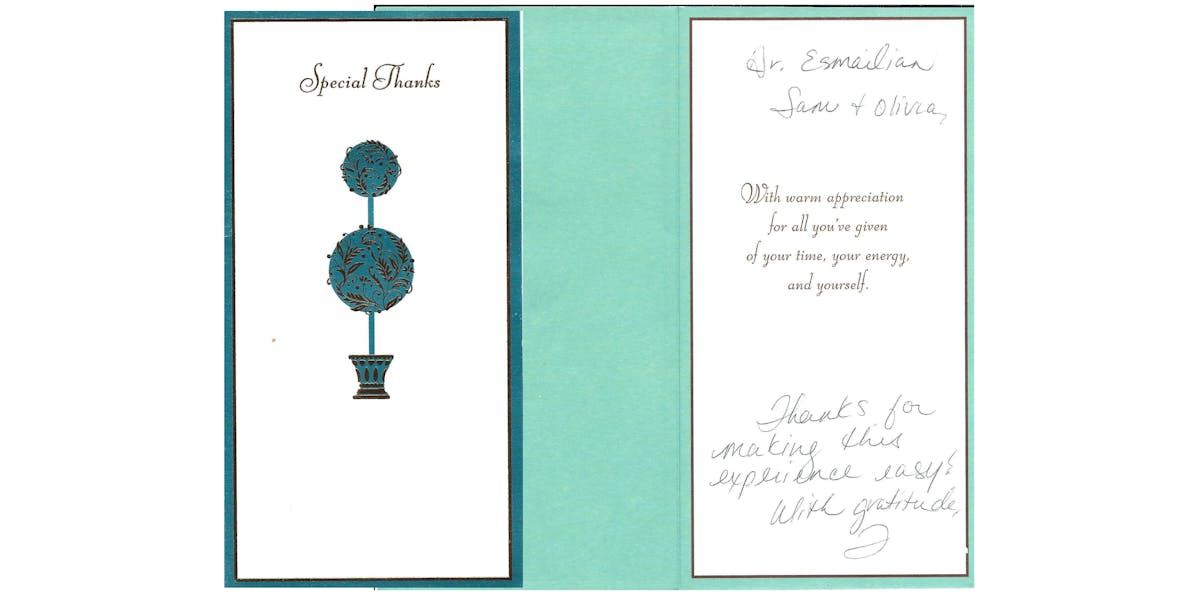 Special Thanks
Dr. Esmailian
Sam + Olivia,
With warm appreciation
for all you've given
of your time, your energy,
and yourself.
Thanks for
making this
experience easy!
With gratitude,
J